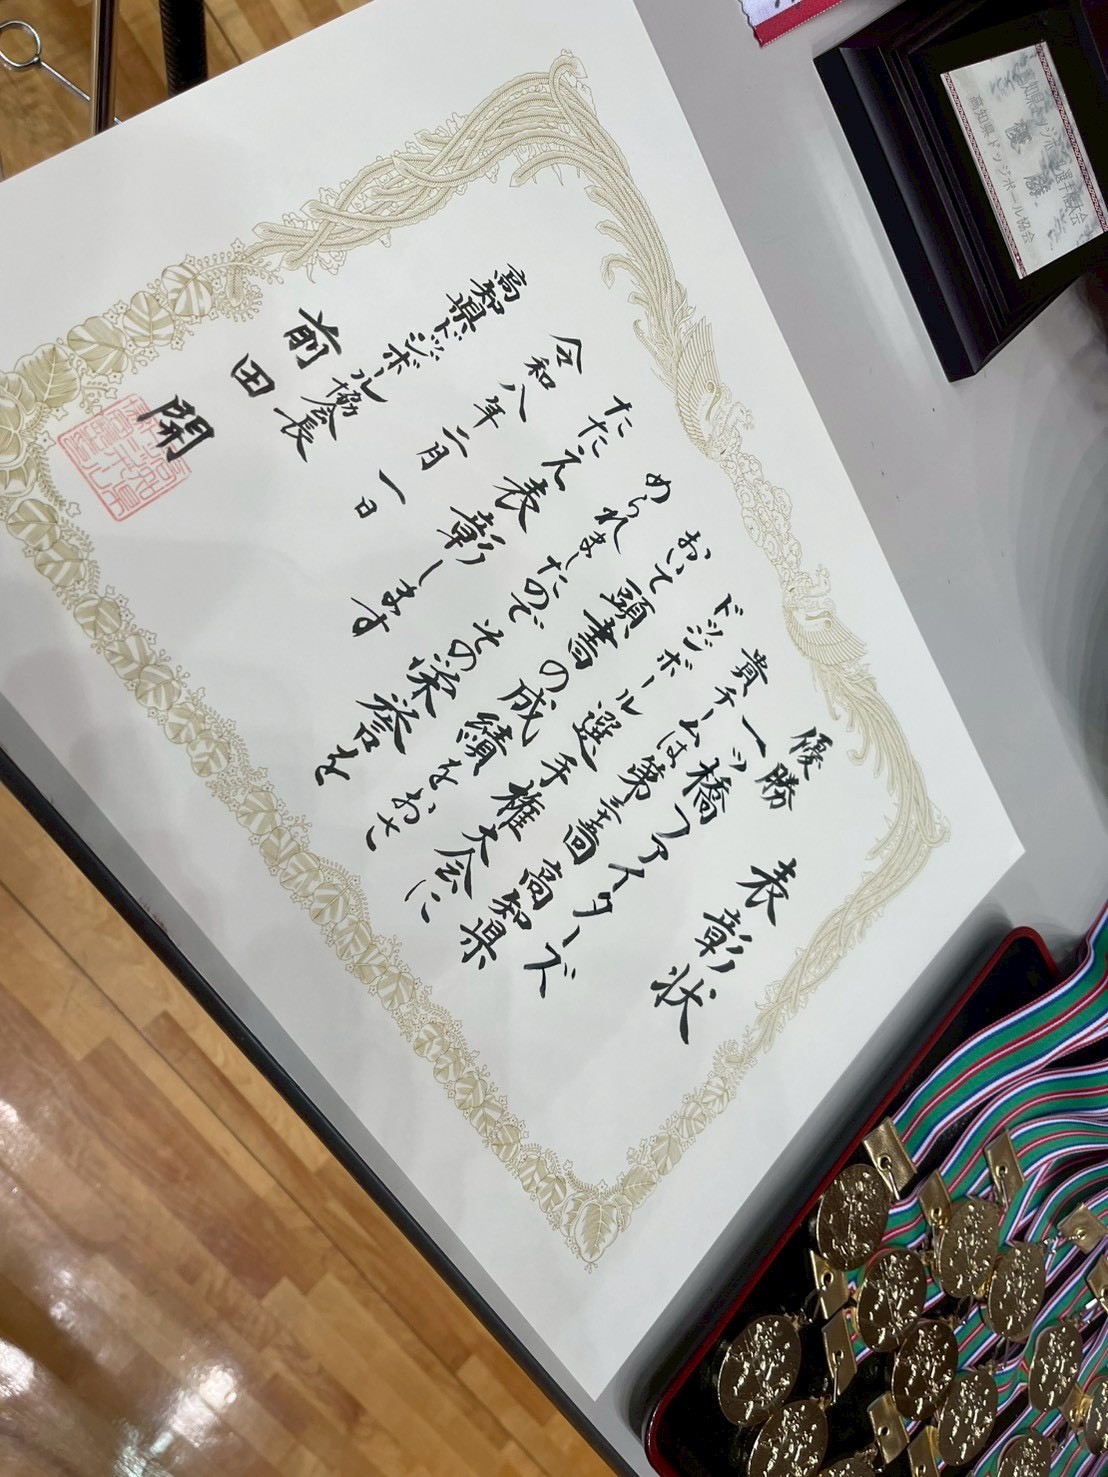 表彰状
優勝
一ッ橋ファイターズ
貴チームは第三十回高知県
ドッジボール選手権大会に
おいて頭書の成績をおさ
められましたのでその栄誉を
たたえ表彰します
令和八年二月一日
高知県ドッジボール協会長
前田開
優勝
高知県ドッジボール協会